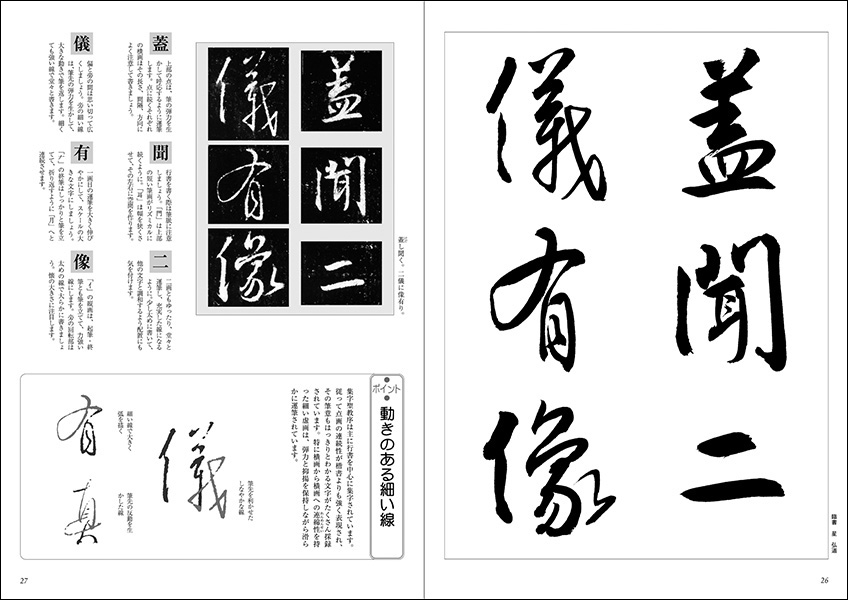 蓋聞二
儀有像
臨書 星 弘道
26
蓋聞二
儀有像
蓋し聞く。二儀に像有り。
蓋
上部の点は、筆の弾力を生
かして呼応するように運筆
します。点に続くそれぞれ
の横画はその長さ、間隔、方向に
よく注意して書きましょう。
聞
行書を書く際は筆脈に注意
しましょう。「門」は上部
の短い筆画がリズミカルに
続くように。「耳」は幅を狭くさ
せて、その左右に空間を作ります。
二
二画ともゆったり、堂々と
運筆し、充実した線になる
ように。少し太めに書いて、
他の文字と調和するよう配置にも
気を付けます。
儀
偏と旁の間は思い切って広
くしましょう。旁の細い線
は、筆先の弾力を生かして、
大きな動きで筆を返します。細く
ても強い線で堂々と書きます。
有
一画目の運筆を大きく伸び
やかにして、スケールの大
きな文字にしましょう。
「ナ」の終筆はしっかりと筆を立
てて、折り返すように「月」へと
連続させます。
像
「イ」の縦画は、起筆・終
筆とも筆を立てて、力強い
線にします。旁の回転部は
太めの線で大らかに書きましょ
う。懐の大きさに注目します。
ポイント
動きのある細い線
集字聖教序は主に行書を中心に集字されています。
従って点画の連続性が楷書よりも強く表現され、
その筆意もはっきりとわかる文字がたくさん採録
されています。特に横画から横画への連綿性を持
った細い虚画は、弾力と抑揚を保持しながら滑ら
かに運筆されています。
儀
筆先を利かせた
しなやかな線
有
細い線で大きく
弧を描く
真
筆先の反動を生
かした線
27